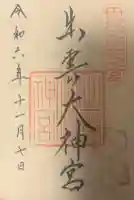 出雲大神宮
令和六年十一月七日